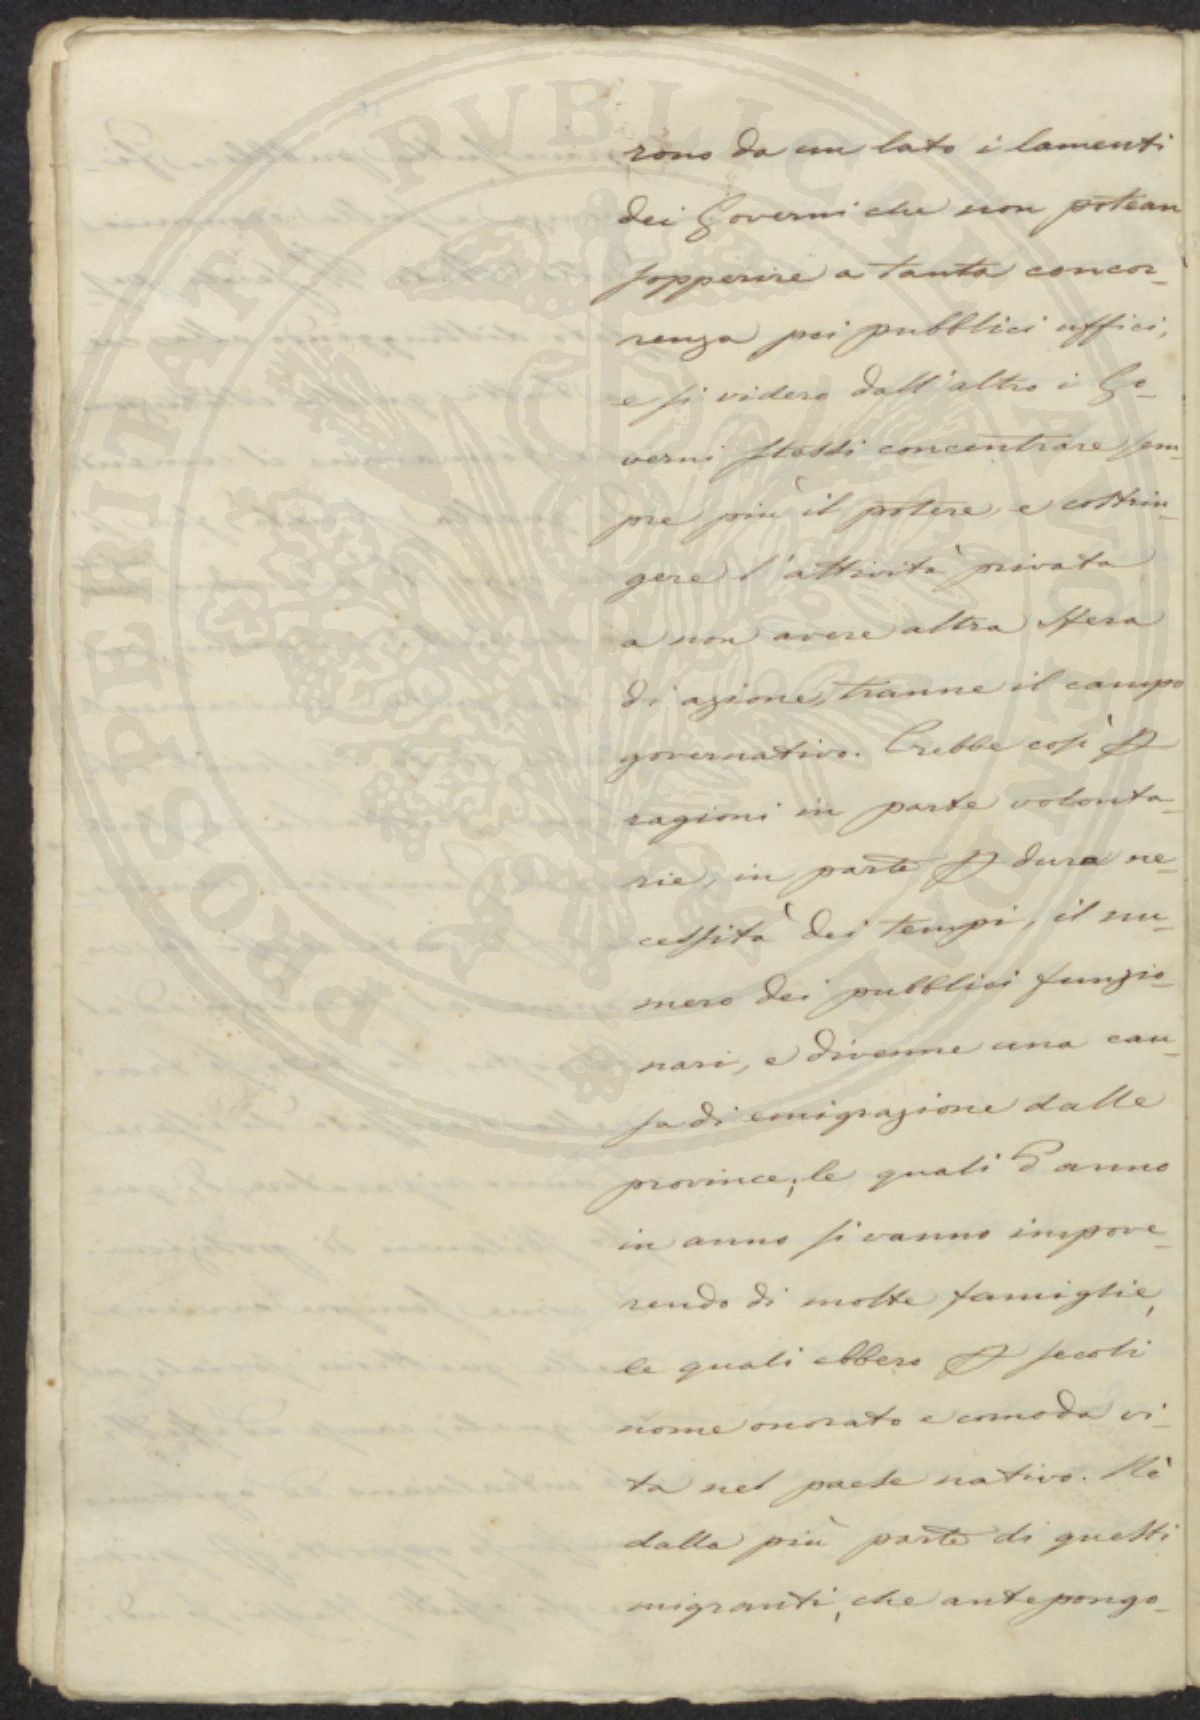 rono da un lato i lamenti
dei Governi che non potean
sopperire a tanta concor-
renza pei pubblici uffici,
e si videro dall'altro i Go-
verni stessi concentrare sem-
pre più il potere, e costrin-
gere l'attività privata
a non avere altra sfera
di azione, tranne il campo
governativo. Crebbe così ꝑ
ragioni in parte volonta-
rie, in parte ꝑ dura ne-
cessità dei tempi, il nu-
mero dei pubblici funzio-
nari, e divenne una cau-
sa di emigrazione dalle
province, le quali d'anno
in anno si vanno impove-
rendo di molte famiglie,
le quali ebbero ꝑ secoli
nome onorato e comoda vi-
ta nel paese nativo. Nè
dalla più parte di questi
migranti, che antepongo-
PROSPERITATI PUBLICAE